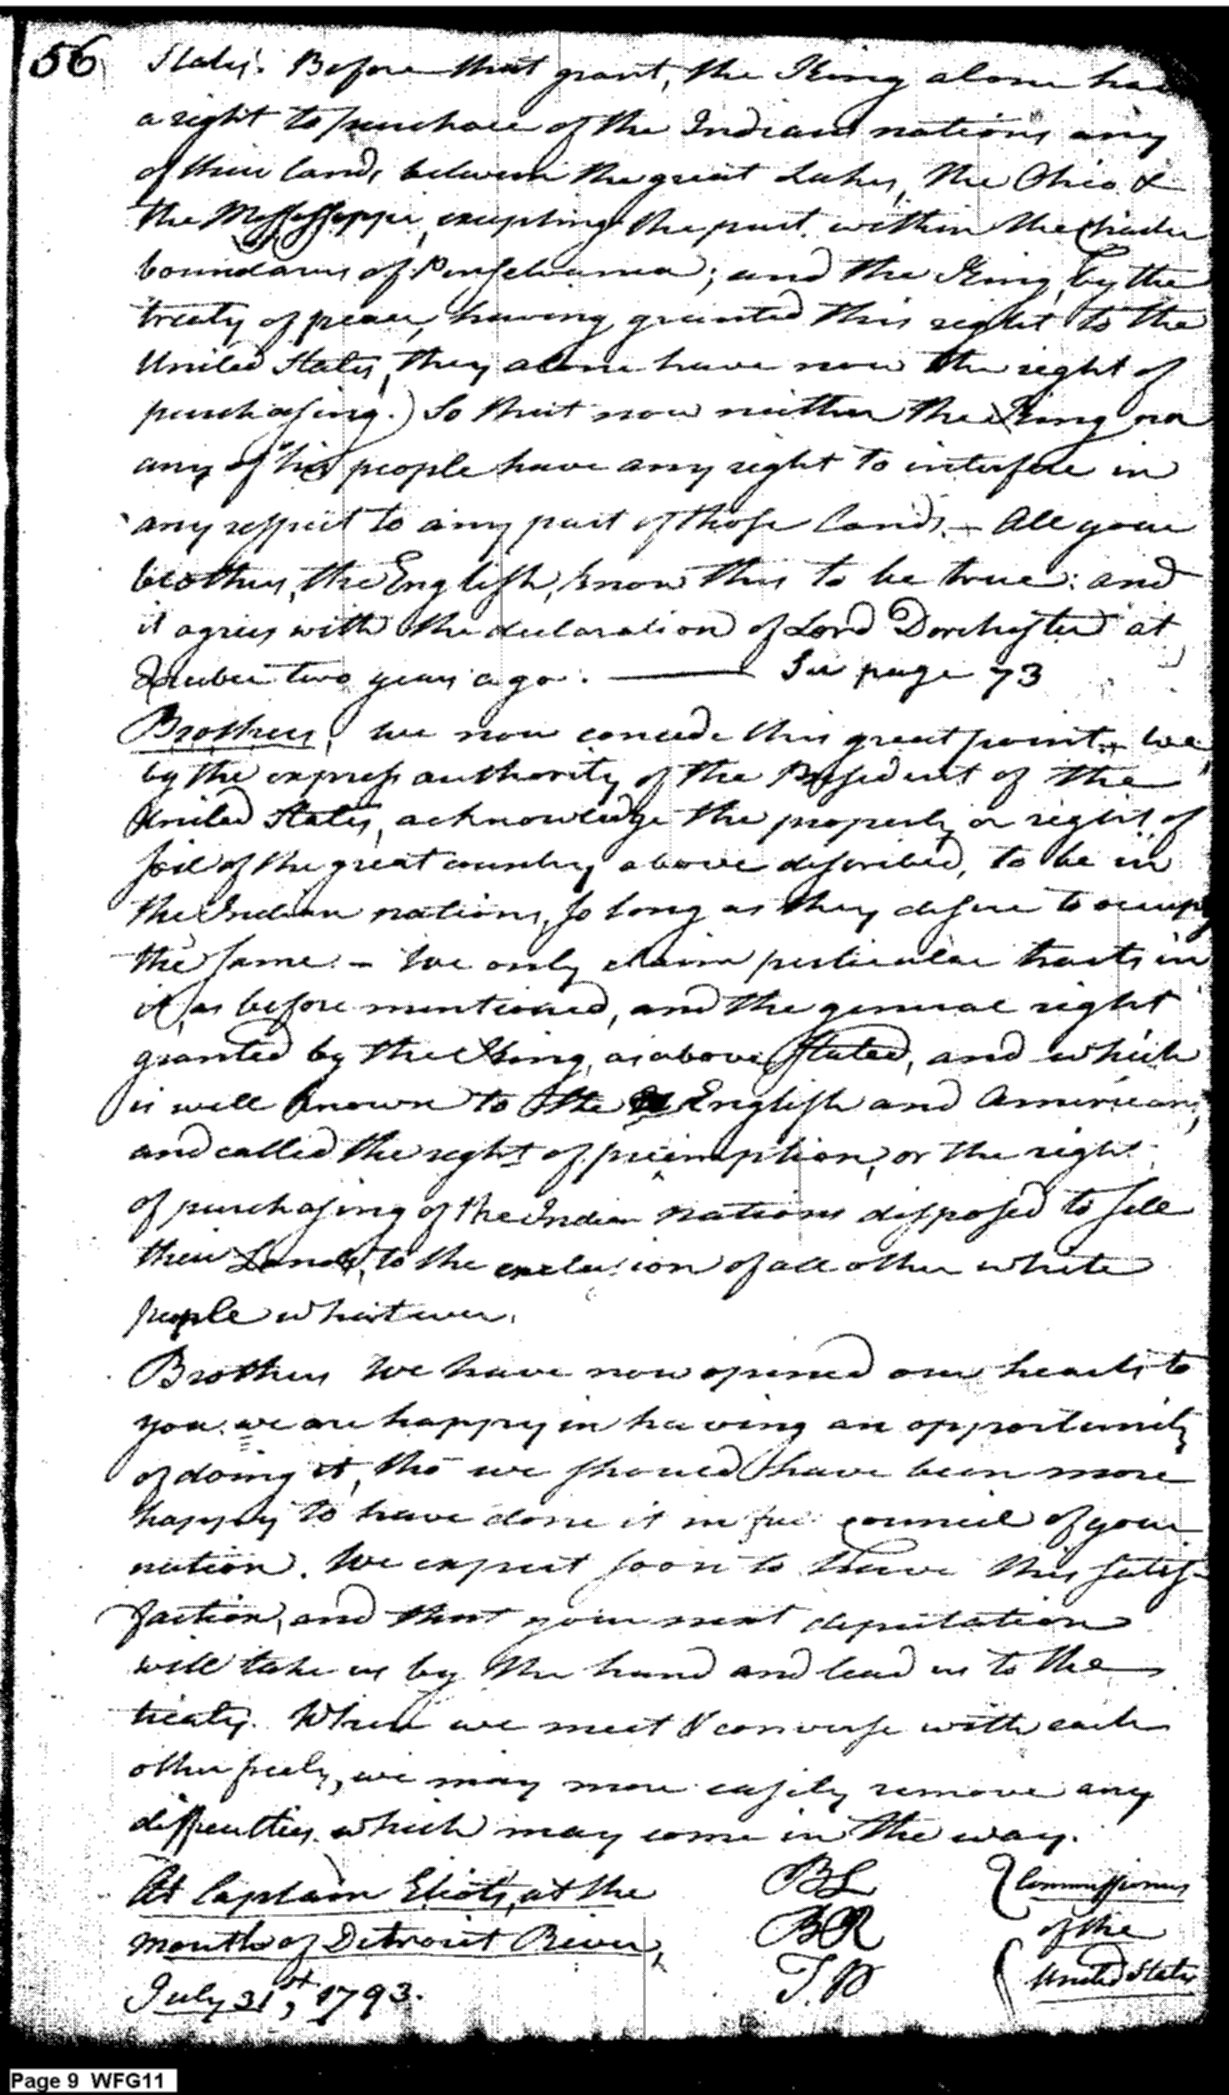 56
States. Before that grant, the King alone had
a right to purchase of the Indian nations any
of their lands between the great Lakes, the Ohio &
the Mississippi, excepting the part within the Charter
boundaries of Pensylvania; and the King, by the
treaty of peace, having granted this right to the
United States, they alone have now the right of
purchasing.) So that now neither the King nor
any of his people have any right to interfere in
any respect to any part of those lands. – All your
brothers, the English, know this to be true: and
it agrees with the declaration of Lord Dorchester at
Quebec two years ago. —— See page 73
Brothers, We now concede this great point. We
by the express authority of the President of the
United States, acknowledge the property or right of
soil of the great country above described, to be in
the Indian nations, so long as they desire to occupy
the same. – We only claim perticular tracts in
it, as before mentioned, and the general right
granted by the King, as above stated, and which
is well known to the English and Americans,
and called the right of preemption, or the right
of purchasing of the Indian nations disposed to sell
their Lands, to the exclusion of all other white
people whatever.
Brothers We have now opened our hearts to
you. we are happy in having an opportunity
of doing it, tho we should have been more
happy to have done it in full council of your
nation. We expect soon to have this satis-
faction, and that your next deputation
will take us by the hand and lead us to the
treaty. When we meet & converse with each
other freely, we may more easily remove any
difficulties which may come in the way.
At Captain Eliots, at the
mouth of Detroit River,
July 31st, 1793.
BL
BR
T.P
Commissioners
of the
United States
Page 9 WFG11